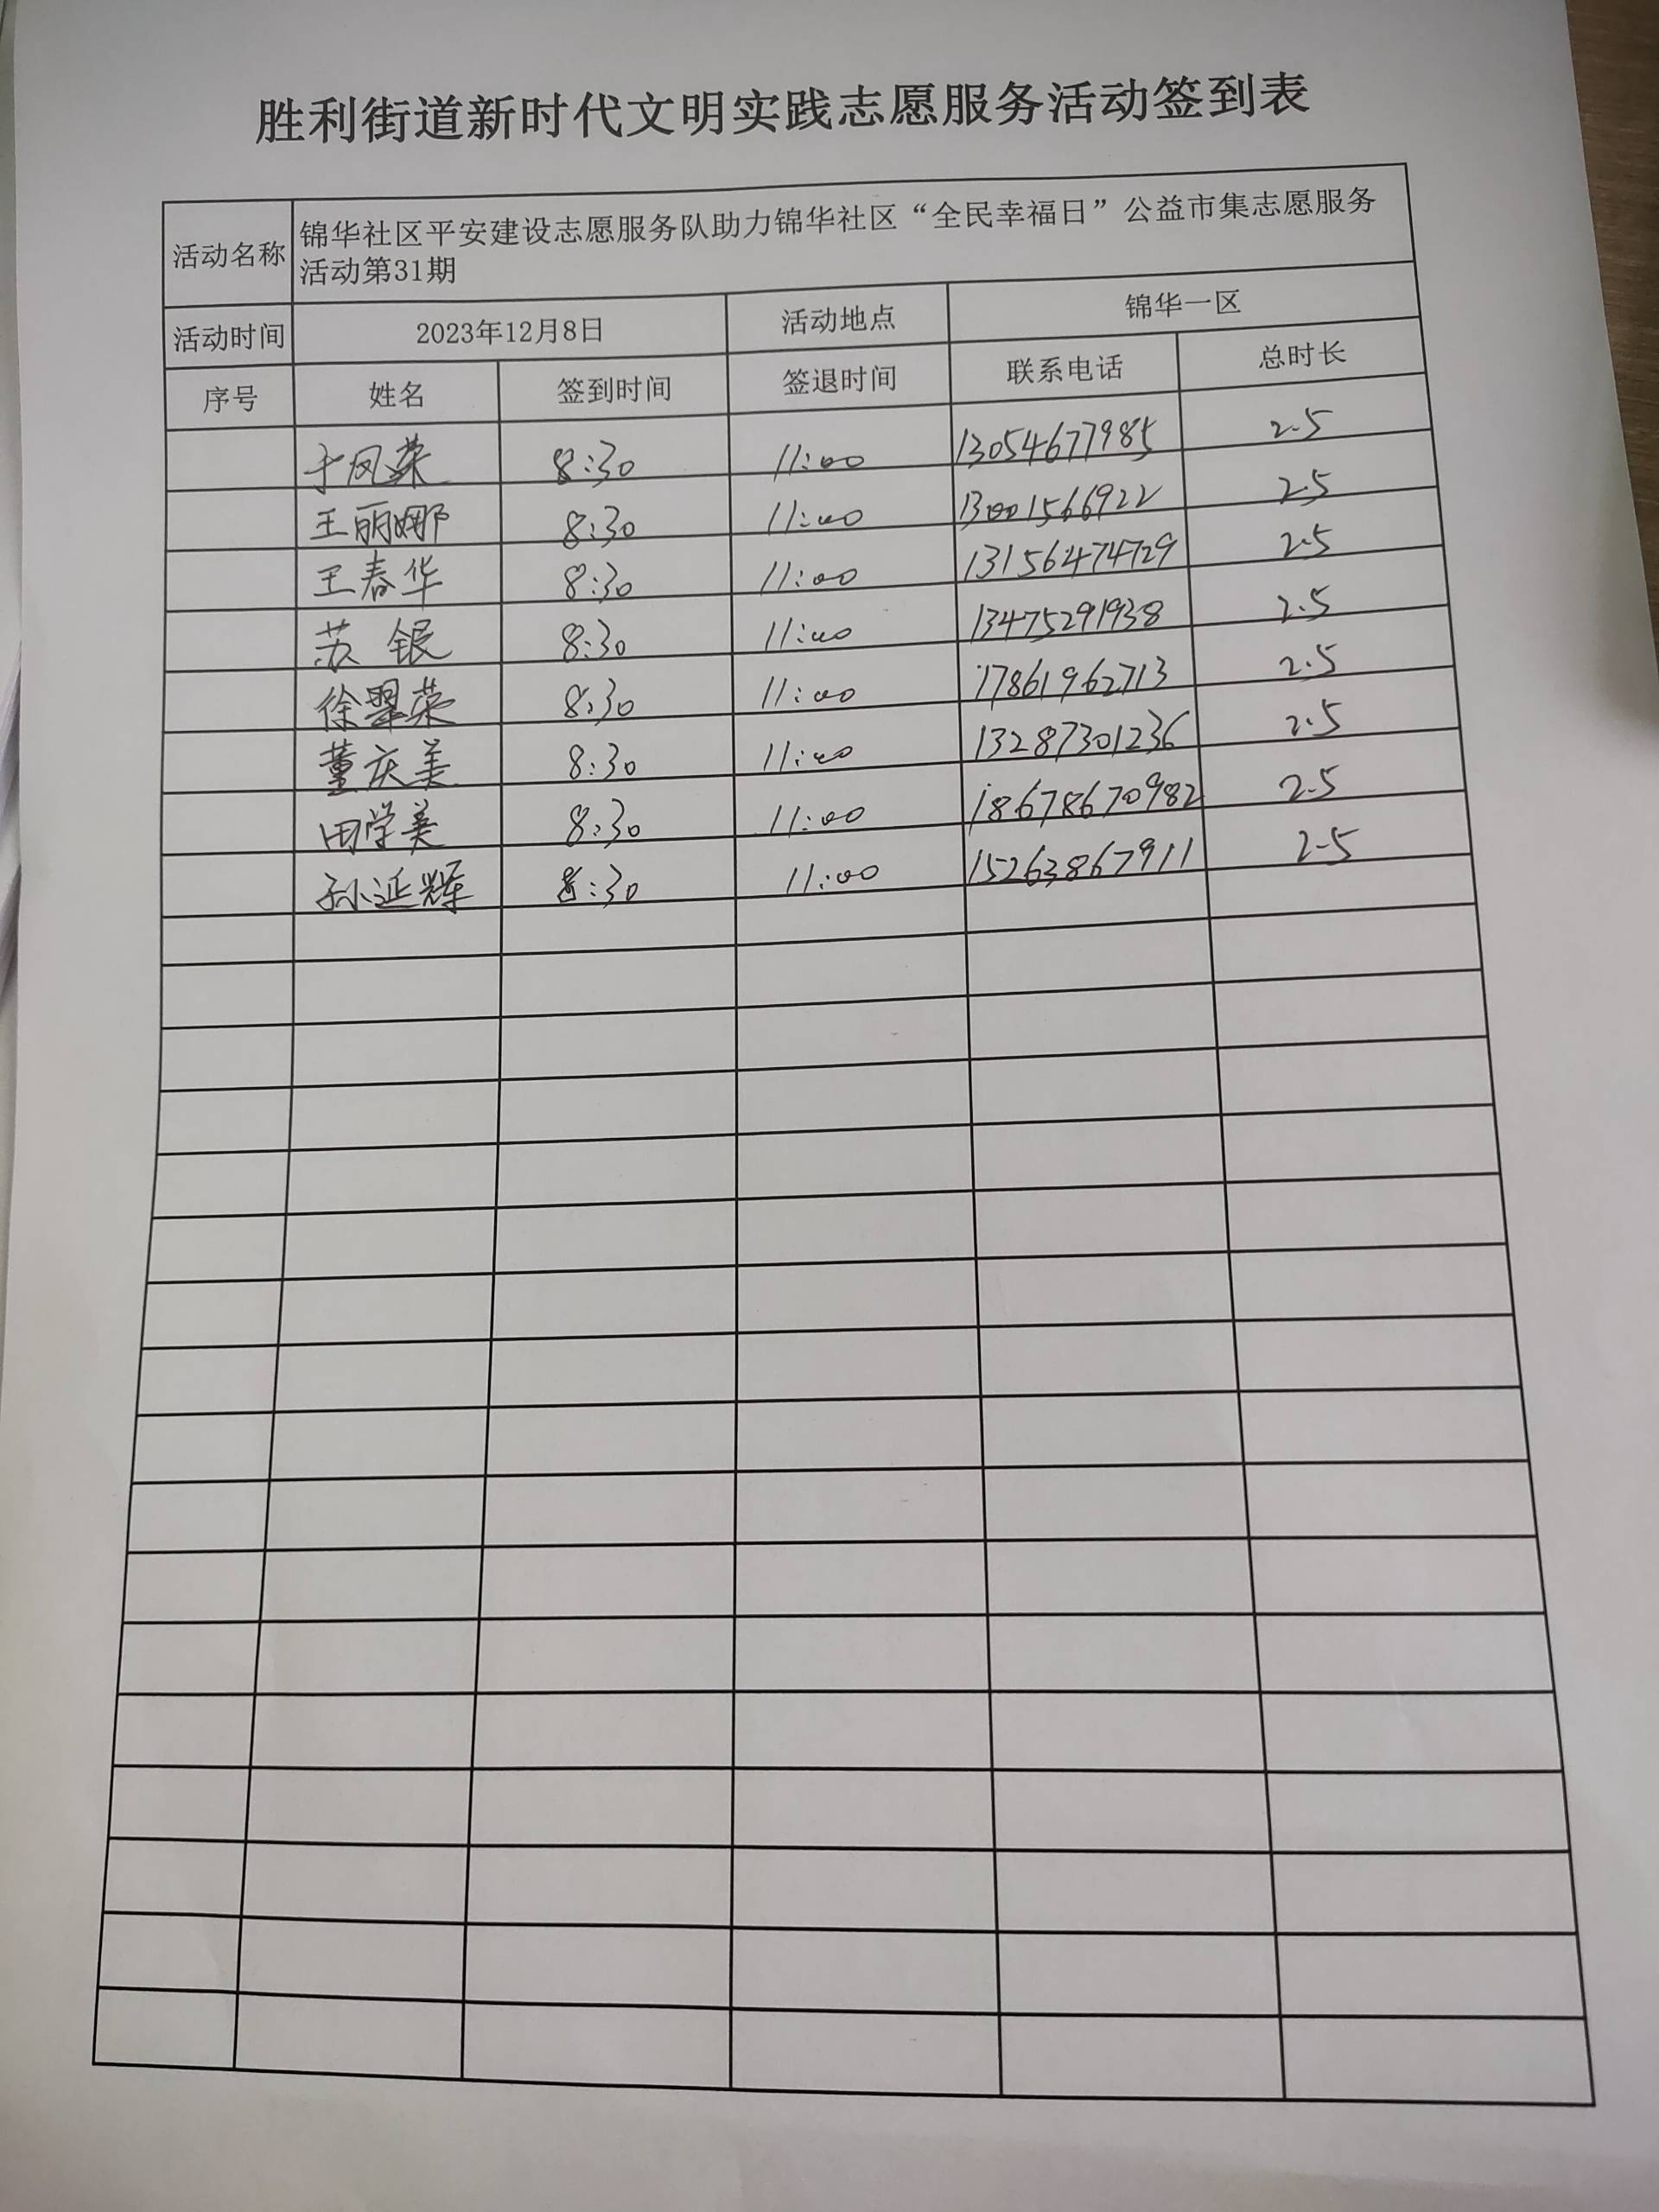 胜利街道新时代文明实践志愿服务活动签到表
活动名称 锦华社区平安建设志愿服务队助力锦华社区“全民幸福日”公益市集志愿服务
活动第31期
活动时间 2023年12月8日 活动地点 锦华一区
序号 姓名 签到时间 签退时间 联系电话 总时长
于凤荣 8:30 11:00 13054677985 2.5
王丽娜 8:30 11:00 13001566922 2.5
王春华 8:30 11:00 13156474729 2.5
苏银 8:30 11:00 13475291938 2.5
徐翠荣 8:30 11:00 17861962713 2.5
董庆美 8:30 11:00 13287301236 2.5
田学美 8:30 11:00 18678670982 2.5
孙延辉 8:30 11:00 15263867911 2.5